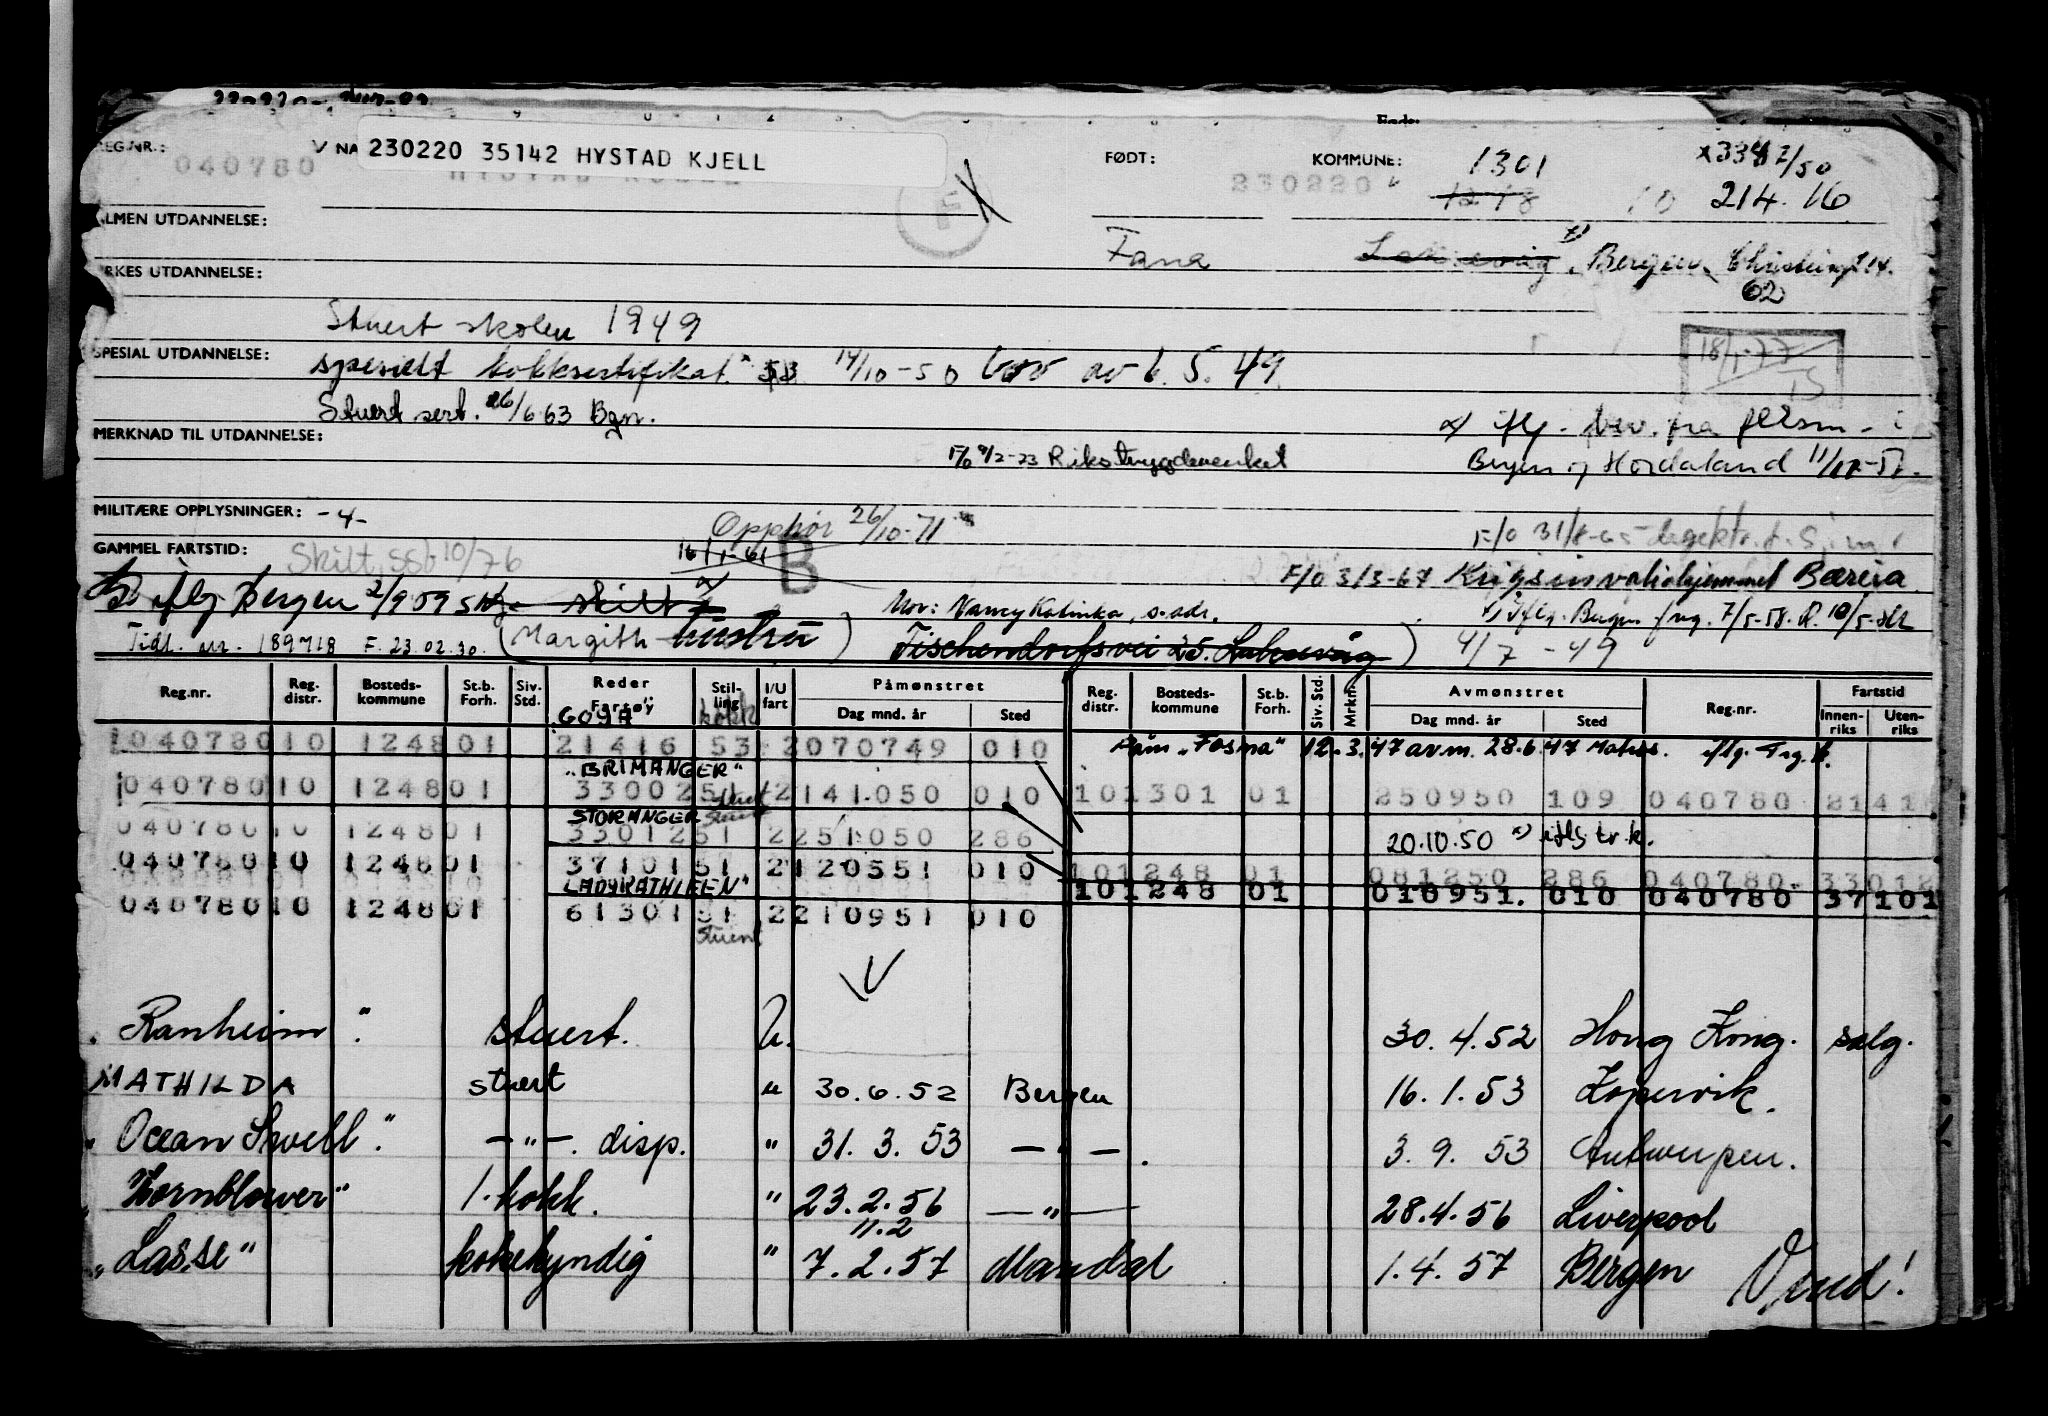 REG.NR.: 040780 NA 230220 35142 HYSTAD KJELL FØDT: 230220 KOMMUNE: 1301 214.16
1218 10
ALMEN UTDANNELSE:
Fana Laksevåg Bergen
62
YRKES UTDANNELSE:
Stuert skolen 1949
SPESIAL UTDANNELSE: spesielt kokksertifikat 14/10-50 av 6.5.49
18/1-77
Stuert sert. 26/6 63 Bgn.
MERKNAD TIL UTDANNELSE: x) iflg. fra i
F/o 9/2-73 Rikstrygdeverket Bergen og Hordaland
MILITÆRE OPPLYSNINGER: -4- Opphør 26/10-71
F/o 31/8-65
GAMMEL FARTSTID: Skilt, ssb 10/76 16/1-61 B
F/o 3/3-67 Krigsinvalidehjemmet Bæreia
iflg Bergen 2/9 59 skilt Mor: Nancy Katinka, s. adr. x) Iflg. Bergen
Tidl. nr. 189718 F. 23.02.30. (Margith hustru) Tischendorfsvei 25. Laksevåg) 4/7-49
Reg.nr. Reg. distr. Bosteds-kommune St.b. Forh. Siv. Std. Reder Fartøy Stil-ling I/U fart Påmønstret Dag mnd. år Sted Reg. distr. Bosteds-kommune St.b. Forh. Siv. Std. Mrkn. Avmønstret Dag mnd. år Sted Reg.nr. Fartstid Innen-riks Uten-riks
GOYA kokk
040780 10 1248 01 21416 53 2 070749 010 Påm "Fosna" 12.3.47 avm. 28.6.47 Matros.
"BRIMANGER"
040780 10 1248 01 33002 51 stuert 2 141050 010 10 1301 01 250950 109 040780 21416
STORANGER Stuert
040780 10 1248 01 33012 51 2 251050 286 20.10.50 x) iflg tr.k.
040780 10 1248 01 37101 51 2 120551 010 10 1248 01 081250 286 040780 33012
"LADY KATHLEEN" 10 1248 01 010951 010 040780 37101
040780 10 1248 01 61301 51 2 210951 010
Stuert
Ranheim" stuert. U. 30.4.52 Hong Kong. salg.
MATHILDA stuert " 30.6.52 Bergen 16.1.53 Kopervik.
"Ocean Swell" -"-. disp. " 31.3.53 -"-. 3.9.53 Antwerpen.
"Hornblower" 1. kokk. " 23.2.56 -"- 28.4.56 Liverpool
11.2
"Lasse" kokekyndig " 7.2.57 Mandal 1.4.57 Bergen Vend!